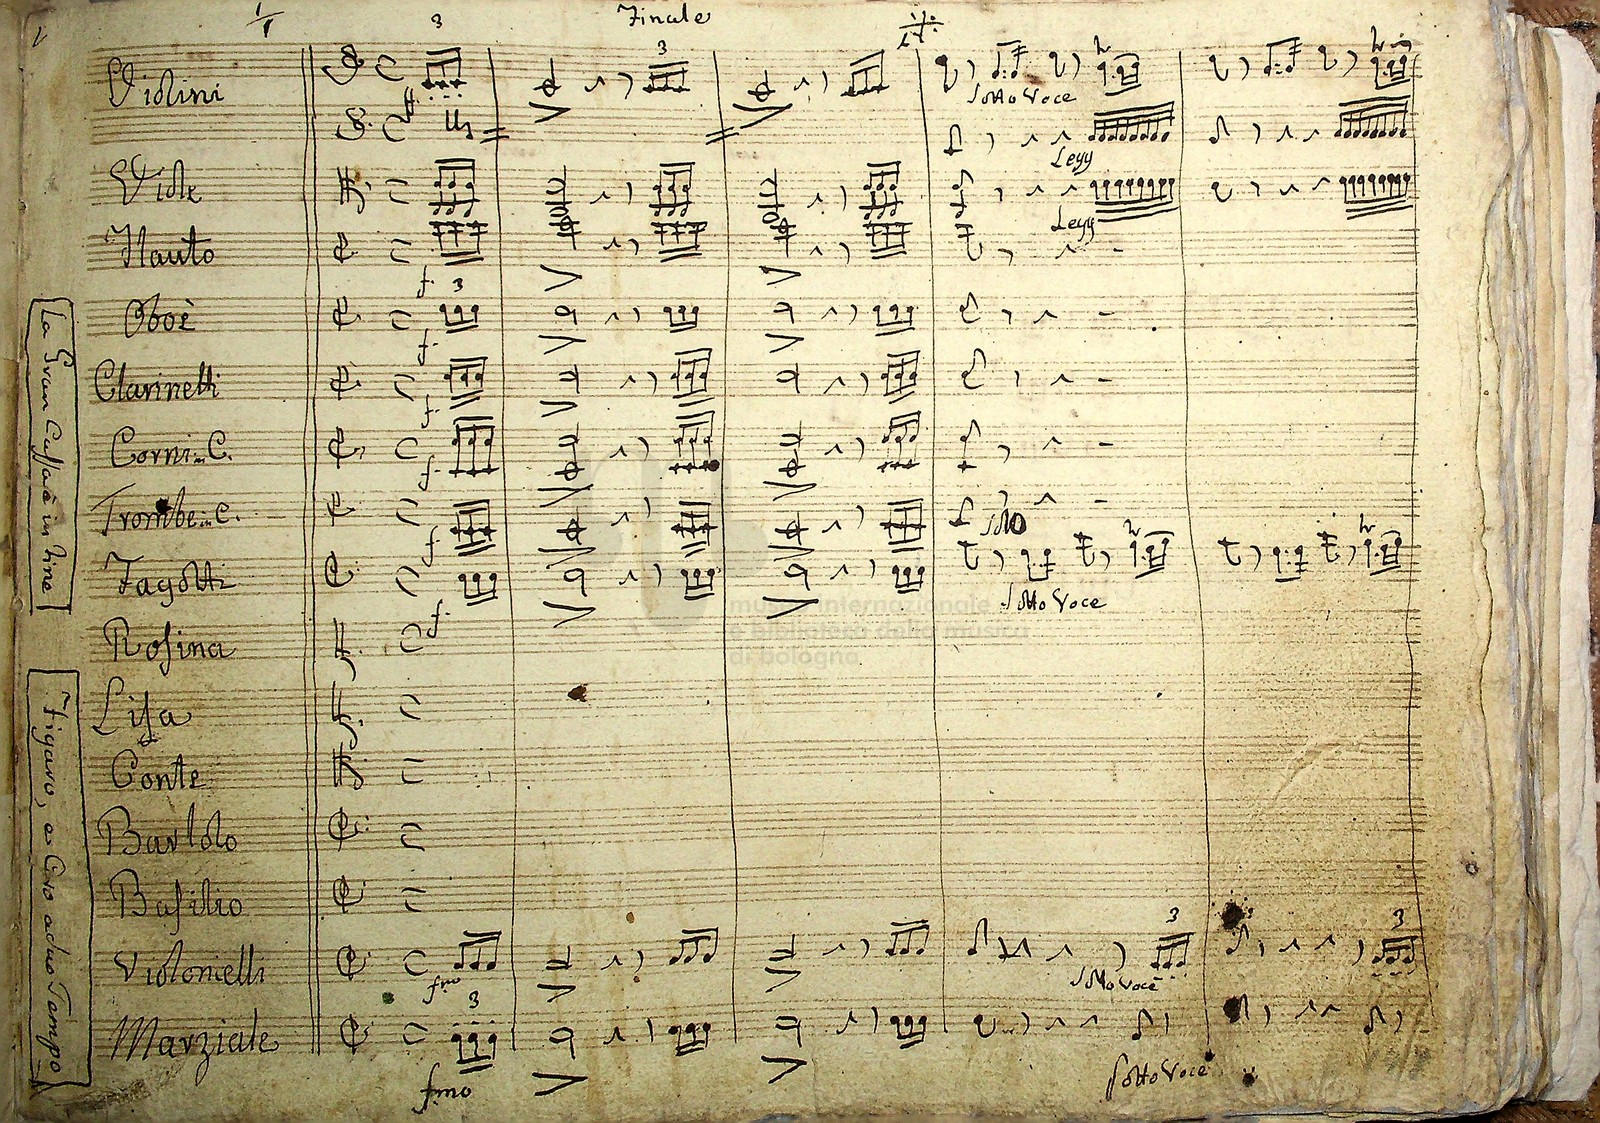 Finale
3
Violini
3
sotto voce
Legg
Viole
Legg
Flauto
f.
3
Oboè
f.
Clarinetti
f.
Corni in C.
f.
Trombe in C.
f.
solo
Fagotti
f.
sotto voce
Rosina
Lisa
Conte
Bartolo
Basilio
Violoncelli
fmo
3
sotto voce
3
3
Marziale
3
fmo
sotto voce
La Gran Cassa è in fine
Figaro, e Coro a suo Tempo
museo internazionale
e biblioteca della musica
di bologna